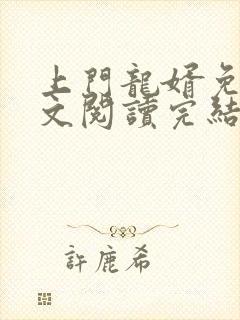 上門龍婿免
文閱讀完結
許鹿希